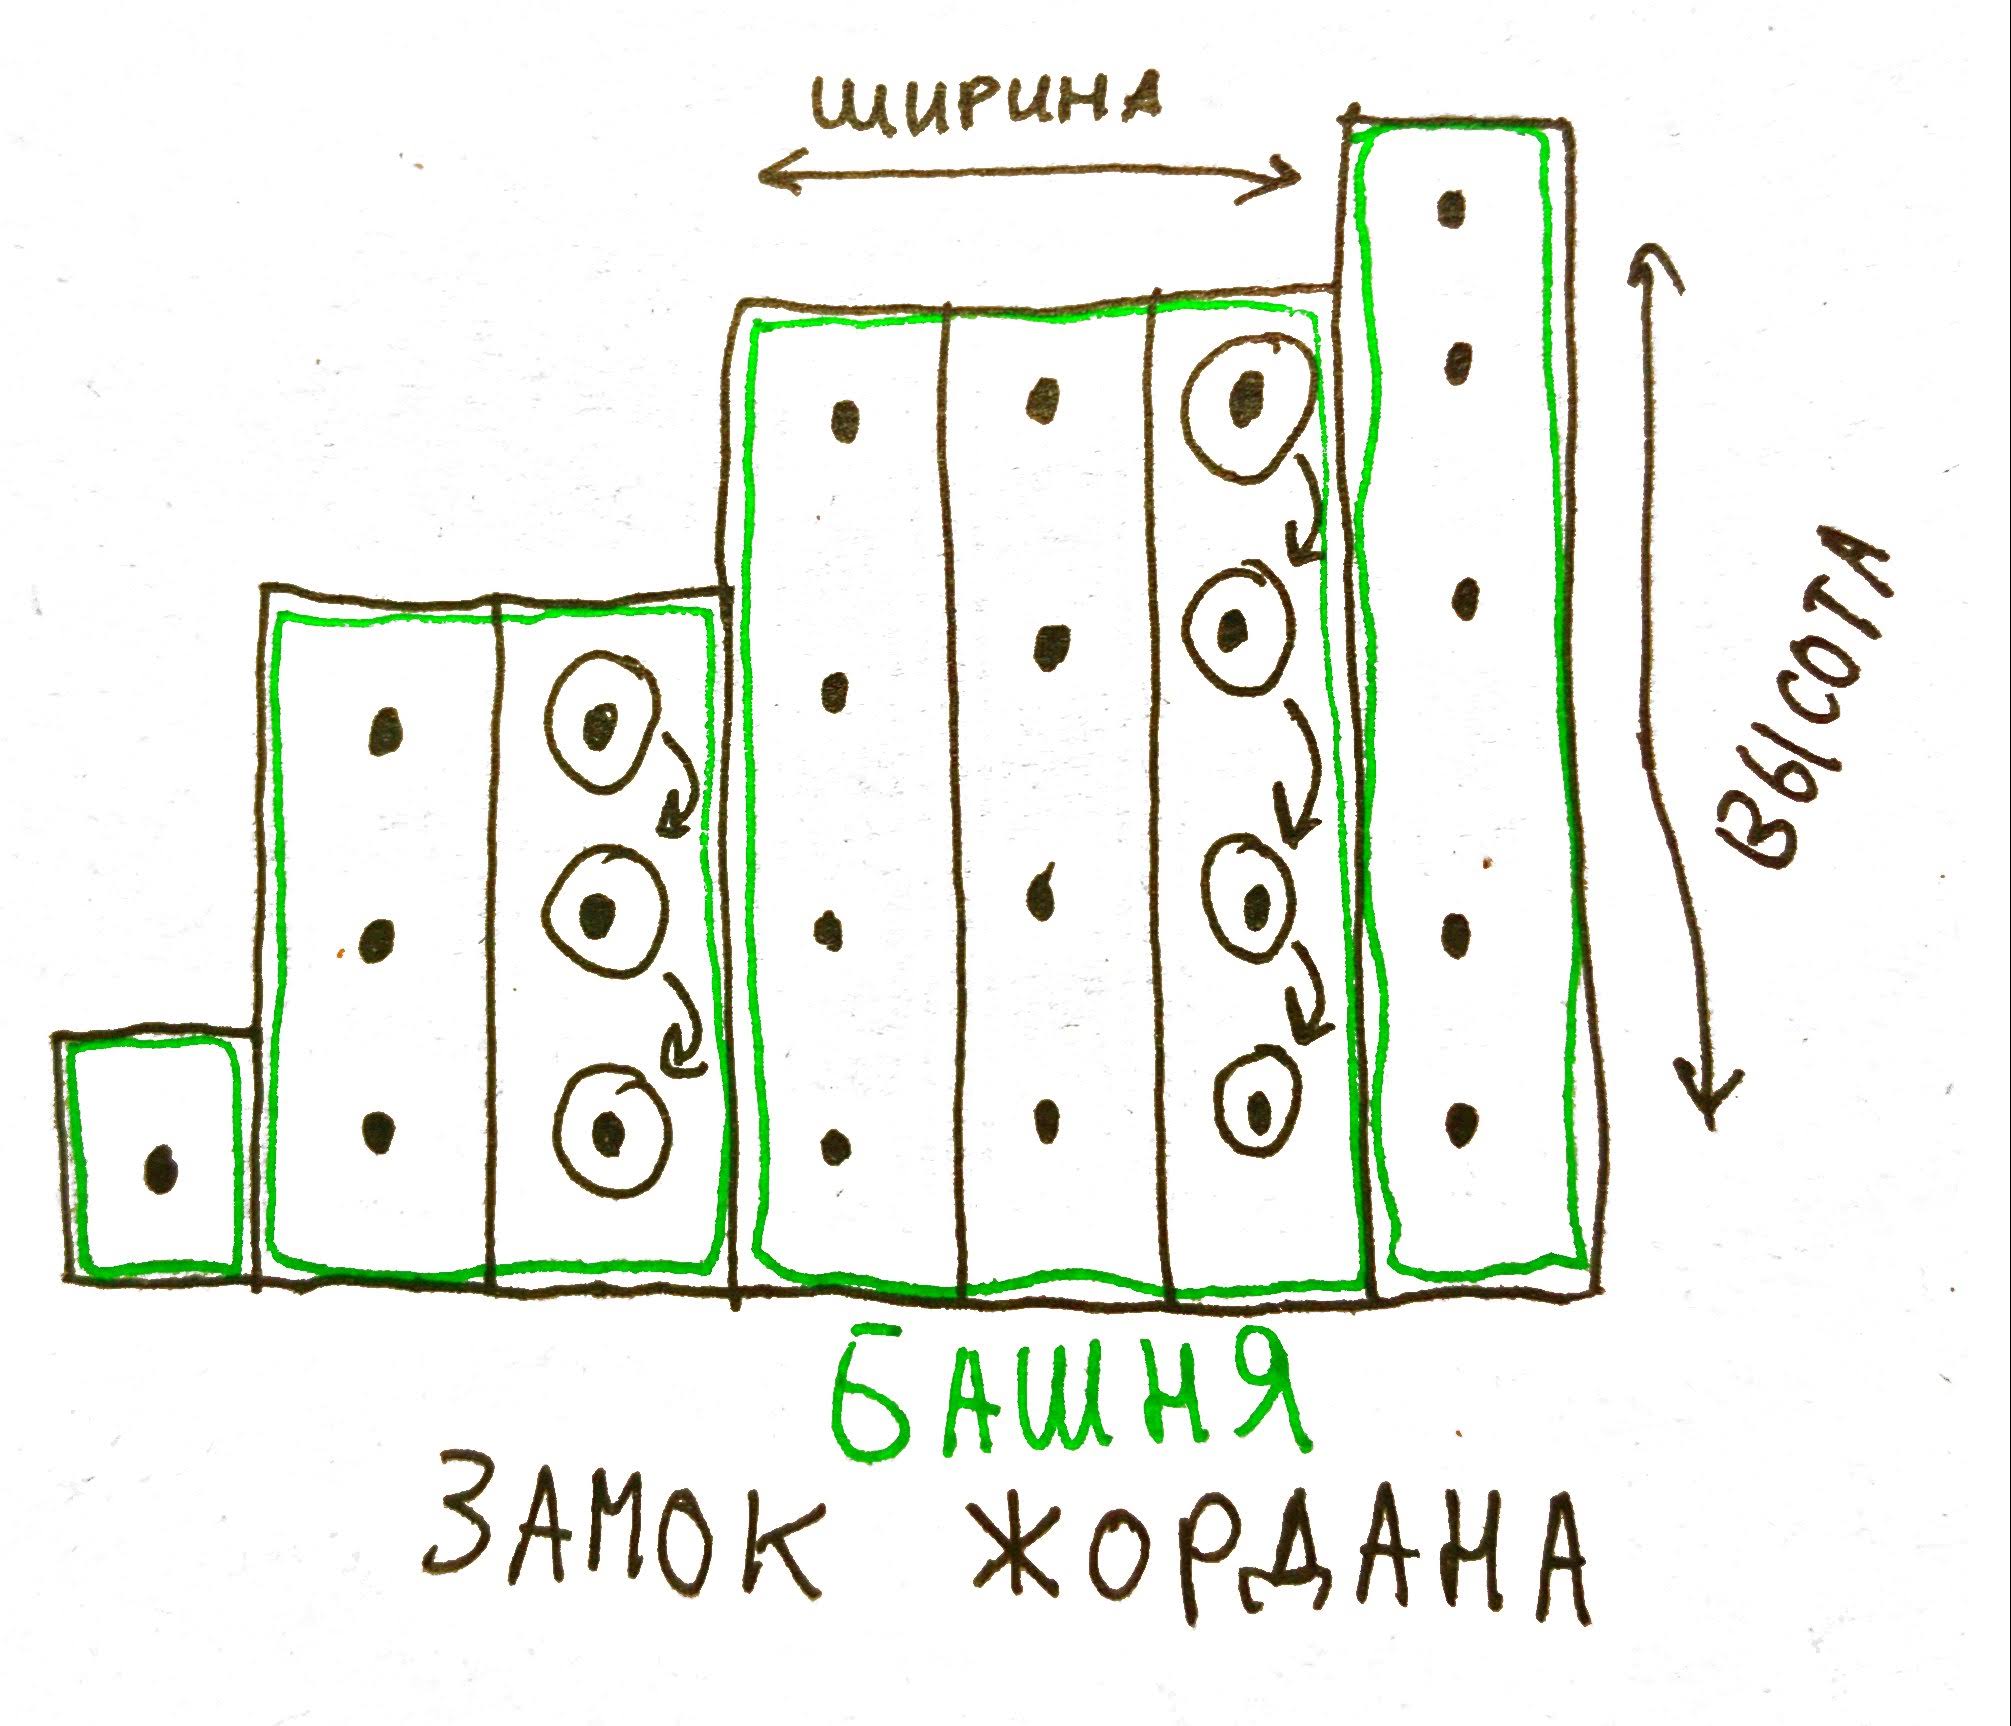 ШИРИНА
ВЫСОТА
БАШНЯ
ЗАМОК ЖОРДАНА